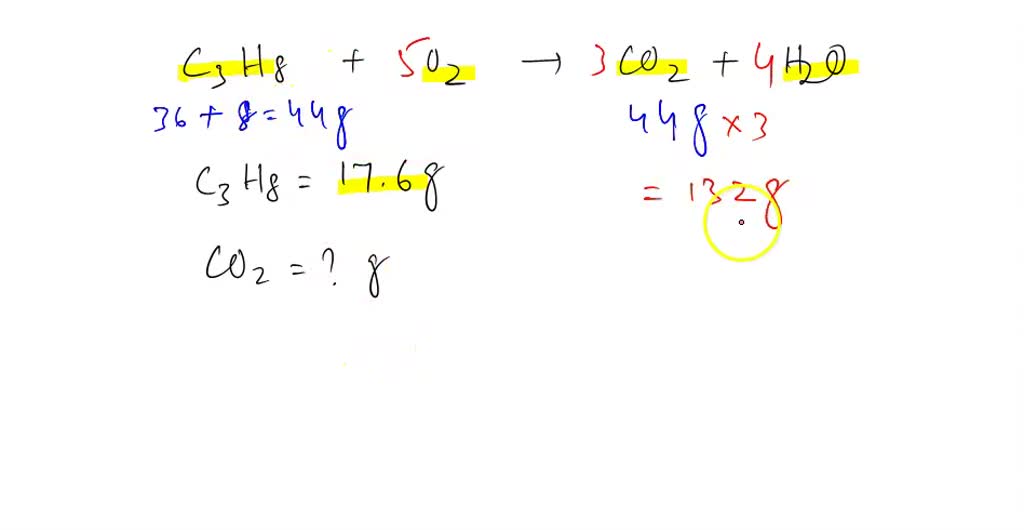 C₃H₈ + 5O₂ → 3CO₂ + 4H₂O
36 + 8 = 44g 44g × 3
C₃H₈ = 17.6g = 132g
CO₂ = ? g